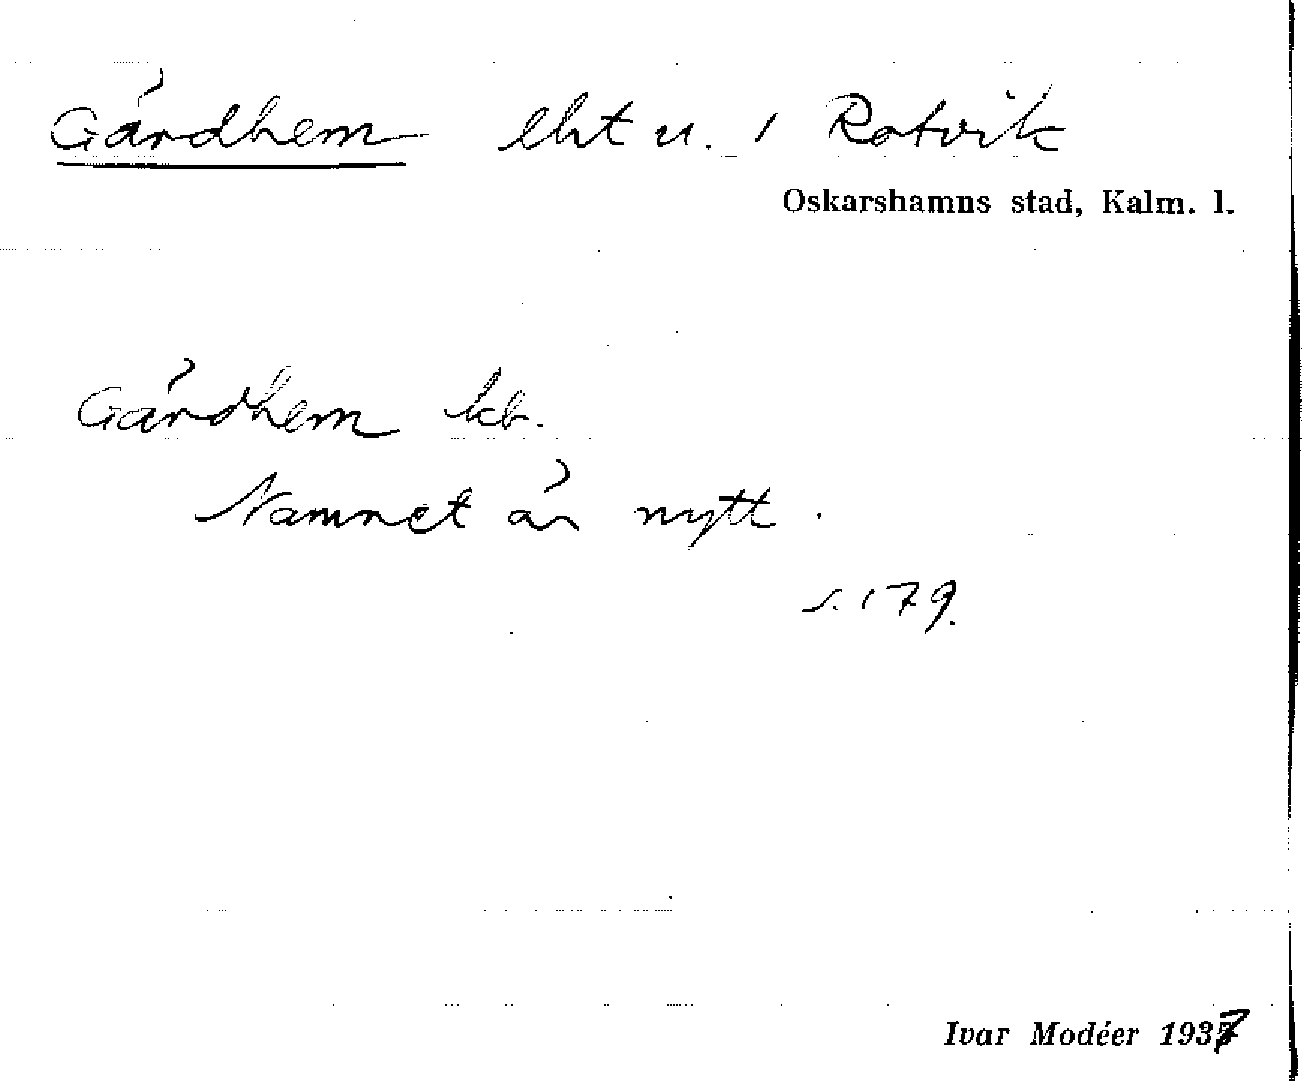 Gårdhem lht u. 1 Rotvik
Oskarshamns stad, Kalm. l.
Gårdhem kb.
Namnet är nytt.
s. 179.
Ivar Modéer 1937